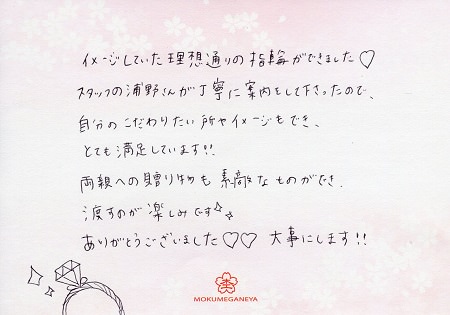 イメージしていた理想通りの指輪ができました♡
スタッフの浦野さんが丁寧に案内をして下さったので、
自分のこだわりたい所やイメージもでき、
とても満足しています!!
両親への贈り物も素敵なものができ、
渡すのが楽しみです☆☆
ありがとうございました♡♡ 大事にします!!
MOKUMEGANEYA